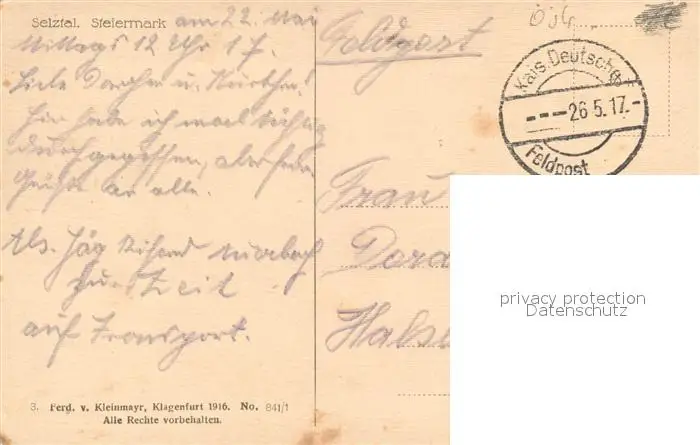 Selztal. Steiermark am 22. Mai
Mittags 12 Uhr 17.
Liebe Dorchen u.
Hier habe ich mal tüchtig
durchgegessen, aber
Grüße an alle.
Als. Jäg Rihard
zur Zeit
auf Transport.
3. Ferd. v. Kleinmayr, Klagenfurt 1916. No. 841/1
Alle Rechte vorbehalten.
Feldpost
Kais. Deutsche
---26.5.17.-
Feldpost
Frau
Dora
privacy protection
Datenschutz